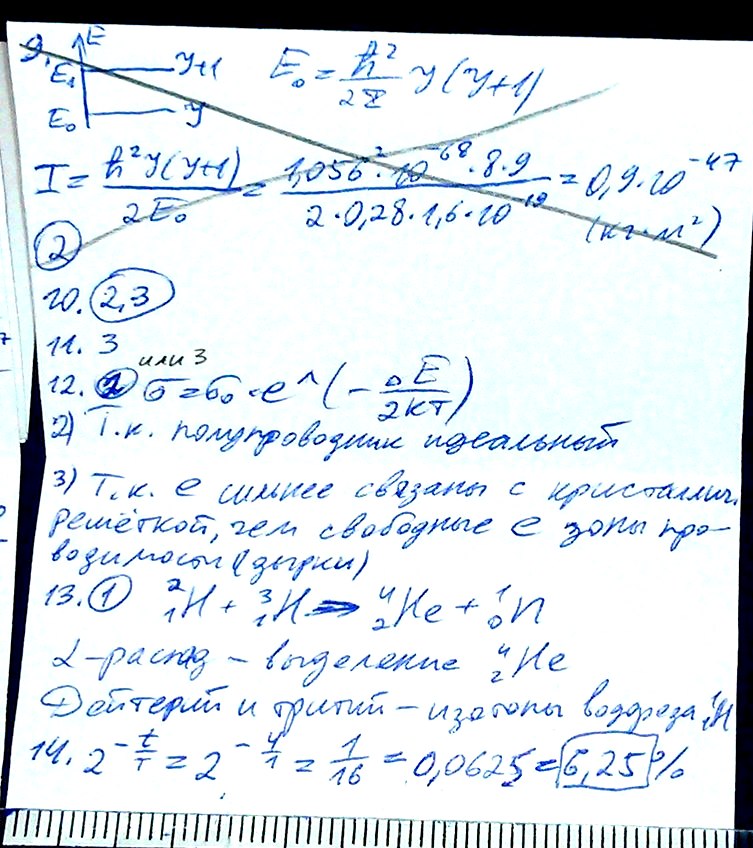 9. E
E₁ y+1
E₀ y
E₀ = ħ²/2I y(y+1)
I = ħ²y(y+1)/2E₀ = 1,056²·10⁻⁶⁸·8·9/2·0,28·1,6·10⁻¹⁹ = 0,9·10⁻⁴⁷
(кг·м²)
2
10. 2,3
11. 3
или 3
12. 2 σ = σ₀·e^(-ΔE/2кТ)
2) Т.к. полупроводник идеальный
3) Т.к. е сильнее связаны с кристаллич.
решёткой, чем свободные е зоны про-
водимости (дырки)
13. 1 ²₁H + ³₁H → ⁴₂He + ¹₀n
α-распад – выделение ⁴₂He
Дейтерий и тритий – изотопы водорода ¹₁H
14. 2^(-t/T) = 2^(-4/1) = 1/16 = 0,0625 = 6,25%